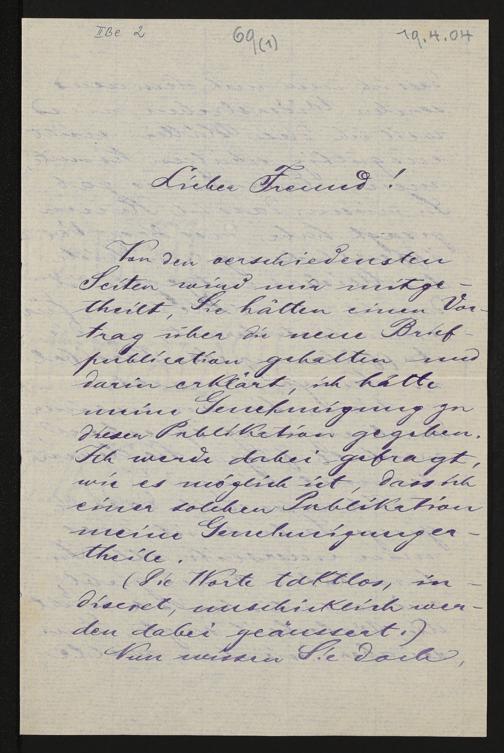 II Be 2
69(1)
19.4.04
Lieber Freund!
Von den verschiedensten
Seiten wird mir mitge-
theilt, Sie hätten einen Vor-
trag über die neue Brief-
publication gehalten und
darin erklärt, ich hätte
meine Genehmigung zu
dieser Publikation gegeben.
Ich werde dabei gefragt,
wie es möglich ist, dass ich
einer solchen Publikation
meine Genehmigung er-
theile.
(Die Worte taktlos, in-
discret, unschicklich wer-
den dabei geäussert.)
Nun wissen Sie doch,